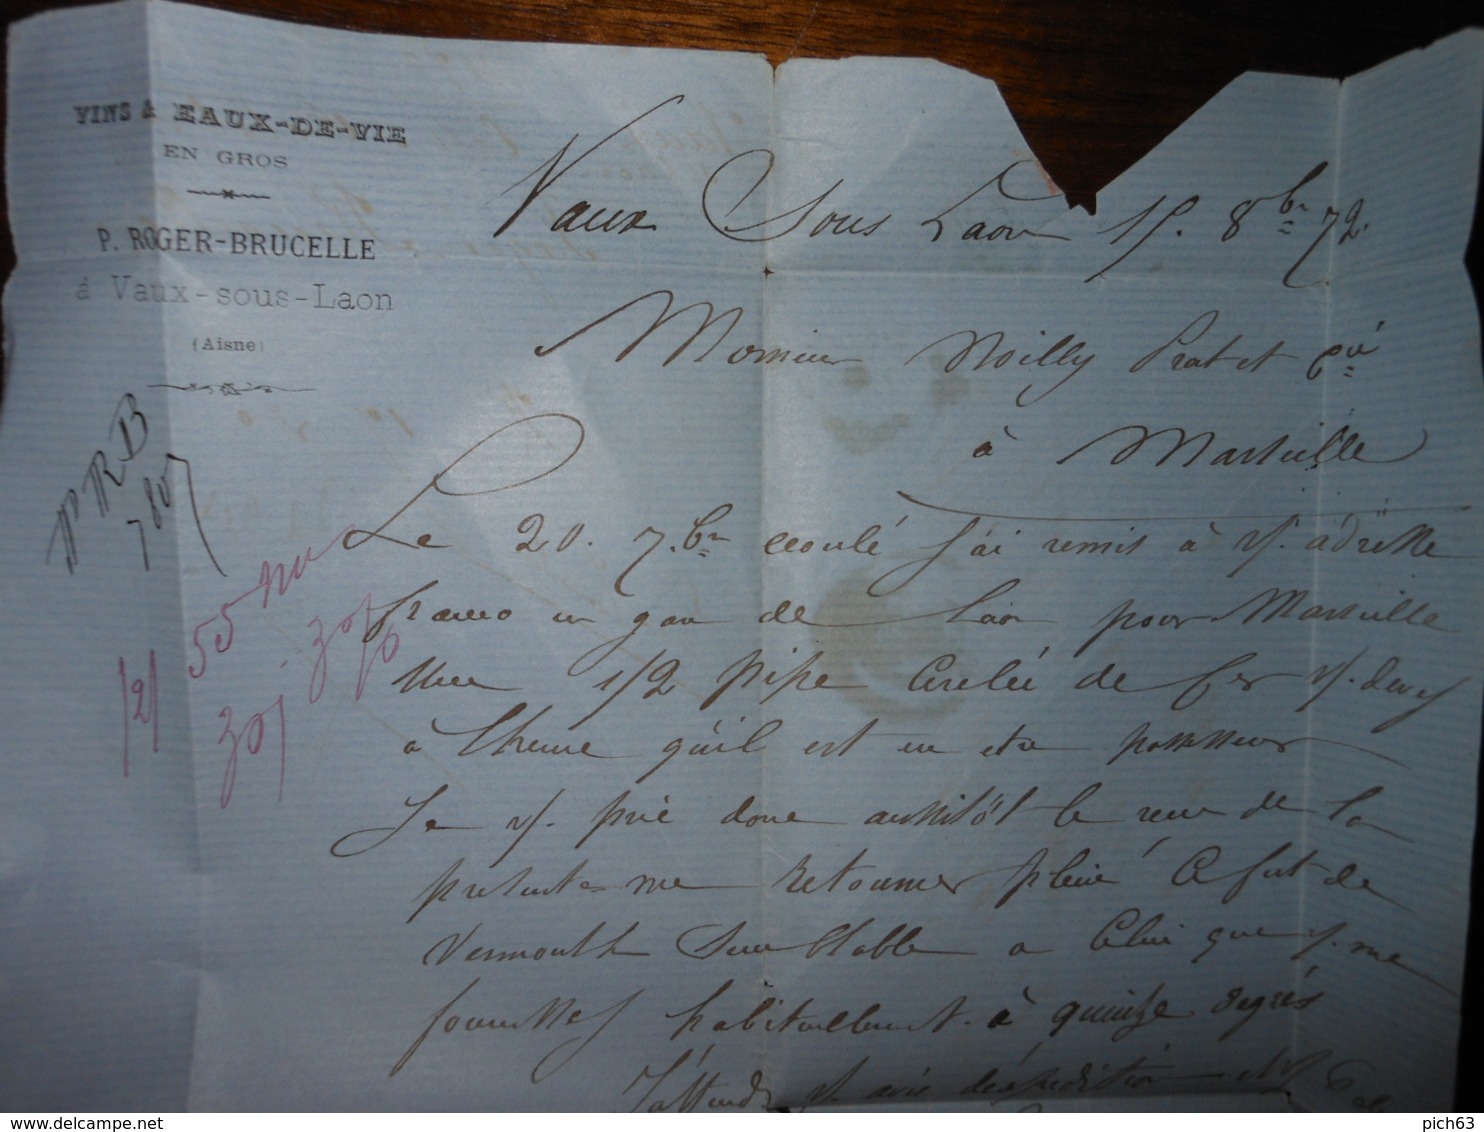 VINS & EAUX-DE-VIE
EN GROS
P. ROGER-BRUCELLE
à Vaux-sous-Laon
(Aisne)
Vaux sous Laon 15. 8bre 72.
Messieurs Noilly Prat et Cie
à Marseille
PRB
780
55
Le 20. 7.bre écoulé j'ai remis à v/. adresse
franco en gare de Laon pour Marseille
une 1/2 pipe cerclée de fer v/. devez
à l'heure qu'il est en etre possesseur
Je v/. prie donc aussitôt le reçu de la
présente me retourner plein ce fut de
Vermouth semblable a celui que v/. me
fournissez habituellement à quinze degrés
J'attends v/. avis d'expédition
delcampe.net
pich63